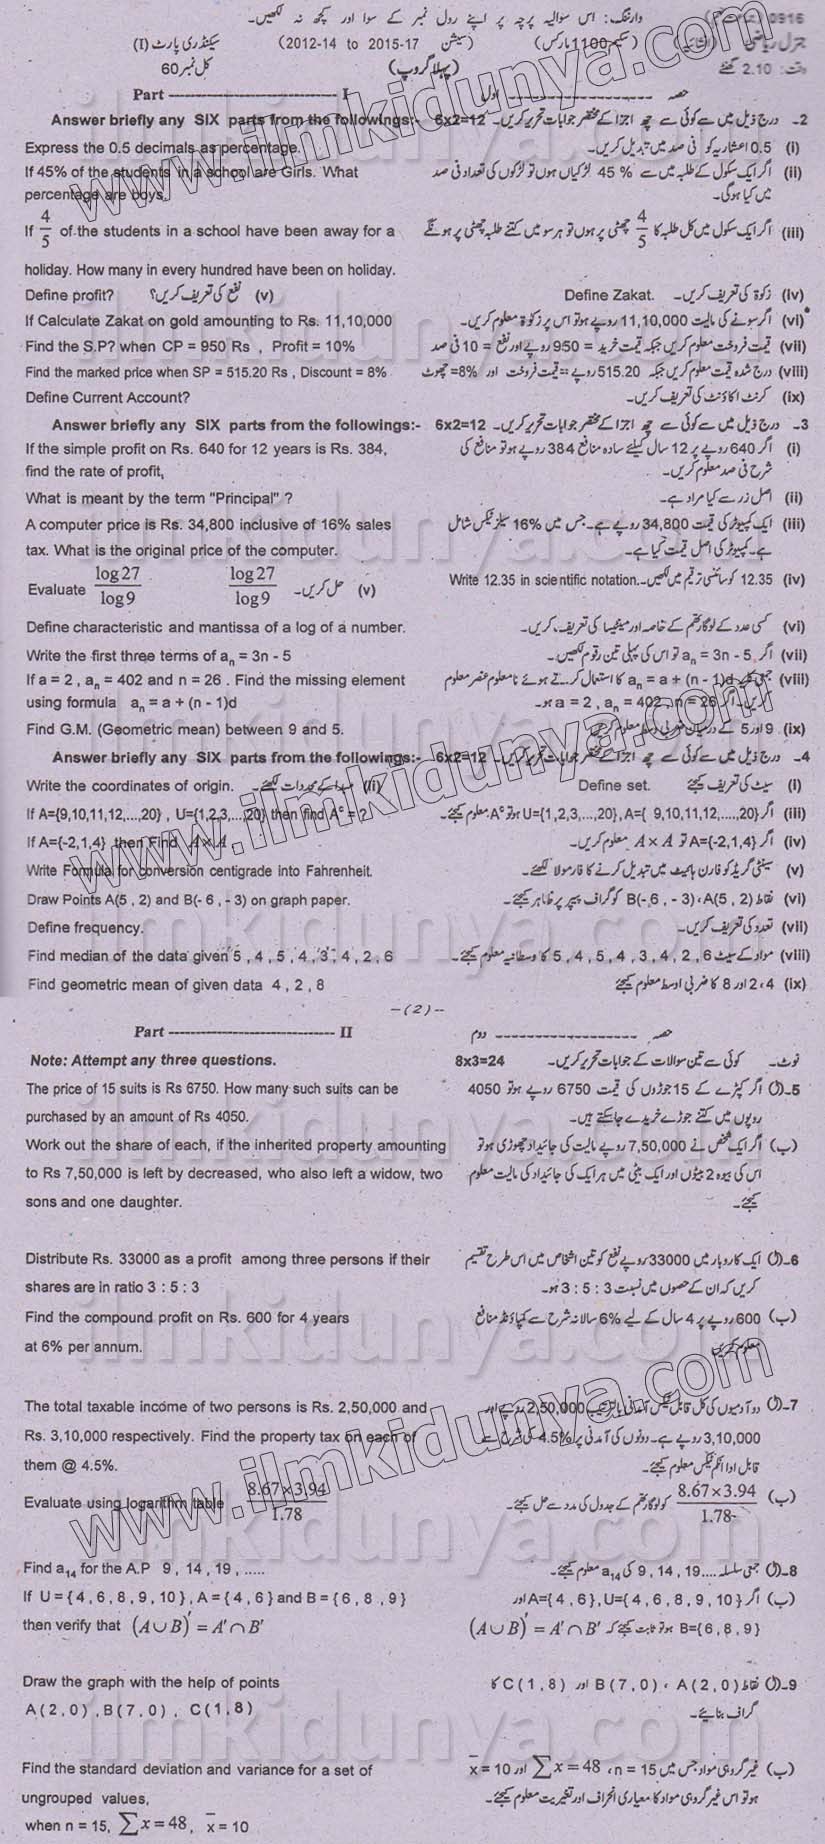 0916 وارننگ: اس سوالیہ پرچہ پر اپنے رول نمبر کے سوا اور کچھ نہ لکھیں۔
جنرل ریاضی (انشائیہ) (سکیم 1100 مارکس) (سیشن 2012-14 to 2015-17) سیکنڈری پارٹ (I)
وقت: 2.10 گھنٹے (پہلا گروپ) کل نمبر 60
Part -------------------------------- I حصہ -------------------- اول
Answer briefly any SIX parts from the followings:- 6x2=12 2۔ درج ذیل میں سے کوئی سے چھ اجزا کے مختصر جوابات تحریر کریں۔
Express the 0.5 decimals as percentage. (i) 0.5 اعشاریہ کو فی صد میں تبدیل کریں۔
If 45% of the students in a school are Girls. What (ii) اگر ایک سکول کے طلبہ میں سے 45 % لڑکیاں ہوں تو لڑکوں کی تعداد فی صد
percentage are boys. میں کیا ہوگی۔
If 4/5 of the students in a school have been away for a (iii) اگر ایک سکول میں کل طلبہ کا 4/5 چھٹی پر ہوں تو ہر سو میں کتنے طلبہ چھٹی پر ہونگے
holiday. How many in every hundred have been on holiday.
Define profit? (v) نفع کی تعریف کریں؟ Define Zakat. (iv) زکوٰۃ کی تعریف کریں۔
If Calculate Zakat on gold amounting to Rs. 11,10,000 (vi) اگر سونے کی مالیت 11,10,000 روپے ہو تو اس پر زکوٰۃ معلوم کریں۔
Find the S.P? when CP = 950 Rs , Profit = 10% (vii) قیمت فروخت معلوم کریں جبکہ قیمت خرید = 950 روپے اور نفع = 10 فی صد
Find the marked price when SP = 515.20 Rs , Discount = 8% (viii) درج شدہ قیمت معلوم کریں جبکہ 515.20 روپے = قیمت فروخت اور 8% = چھوٹ
Define Current Account? (ix) کرنٹ اکاؤنٹ کی تعریف کریں۔
Answer briefly any SIX parts from the followings:- 6x2=12 3۔ درج ذیل میں سے کوئی سے چھ اجزا کے مختصر جوابات تحریر کریں۔
If the simple profit on Rs. 640 for 12 years is Rs. 384, (i) اگر 640 روپے پر 12 سال کیلئے سادہ منافع 384 روپے ہو تو منافع کی
find the rate of profit, شرح فی صد معلوم کریں۔
What is meant by the term "Principal" ? (ii) اصل زر سے کیا مراد ہے۔
A computer price is Rs. 34,800 inclusive of 16% sales (iii) ایک کمپیوٹر کی قیمت 34,800 روپے ہے۔ جس میں 16% سیلز ٹیکس شامل
tax. What is the original price of the computer. ہے۔ کمپیوٹر کی اصل قیمت کیا ہے۔
Evaluate log27/log9 (v) حل کریں۔ log27/log9 Write 12.35 in scientific notation. (iv) 12.35 کو سائنسی ترقیم میں لکھیں۔
Define characteristic and mantissa of a log of a number. (vi) کسی عدد کے لوگارتھم کے خاصہ اور مینٹیسا کی تعریف کریں۔
Write the first three terms of aₙ = 3n - 5 (vii) اگر aₙ = 3n - 5 تو اس کی پہلی تین رقوم لکھیں۔
If a = 2 , aₙ = 402 and n = 26 . Find the missing element (viii) aₙ = a + (n - 1)d کا استعمال کرتے ہوئے نامعلوم عنصر معلوم
using formula aₙ = a + (n - 1)d کریں۔ اگر a = 2 , aₙ = 402 , n = 26 ہو۔
Find G.M. (Geometric mean) between 9 and 5. (ix) 9 اور 5 کے درمیان ضربی وسط معلوم کریں۔
Answer briefly any SIX parts from the followings:- 6x2=12 4۔ درج ذیل میں سے کوئی سے چھ اجزا کے مختصر جوابات تحریر کریں۔
Write the coordinates of origin. (ii) مبدا کے محددات لکھئے۔ Define set. (i) سیٹ کی تعریف کیجئے
If A={9,10,11,12,...,20} , U={1,2,3,...,20} then find Aᶜ = ? (iii) اگر A={ 9,10,11,12,....,20} ,U={1,2,3,...,20} ہو تو Aᶜ معلوم کیجئے۔
If A={-2,1,4} then Find A×A (iv) اگر A={-2,1,4} تو A×A معلوم کریں۔
Write Formula for conversion centigrade into Fahrenheit. (v) سینٹی گریڈ کو فارن ہائیٹ میں تبدیل کرنے کا فارمولا لکھئے۔
Draw Points A(5 , 2) and B(- 6 , - 3) on graph paper. (vi) نقاط A(5 , 2) ، B(- 6 , - 3) کو گراف پیپر پر ظاہر کیجئے۔
Define frequency. (vii) تعدد کی تعریف کریں۔
Find median of the data given 5 , 4 , 5 , 4 , 3 , 4 , 2 , 6 (viii) مواد کے سیٹ 5 , 4 , 5 , 4 , 3 , 4 , 2 , 6 کا وسطانیہ معلوم کیجئے۔
Find geometric mean of given data 4 , 2 , 8 (ix) 4 ، 2 اور 8 کا ضربی اوسط معلوم کیجئے
--(2)--
Part -------------------------------- II حصہ -------------------- دوم
Note: Attempt any three questions. 8x3=24 نوٹ۔ کوئی سے تین سوالات کے جوابات تحریر کریں۔
The price of 15 suits is Rs 6750. How many such suits can be 5۔(ا) اگر کپڑے کے 15 جوڑوں کی قیمت 6750 روپے ہو تو 4050
purchased by an amount of Rs 4050. روپوں میں کتنے جوڑے خریدے جاسکتے ہیں۔
Work out the share of each, if the inherited property amounting (ب) اگر ایک شخص نے 7,50,000 روپے مالیت کی جائیداد چھوڑی ہو تو
to Rs 7,50,000 is left by decreased, who also left a widow, two اس کی بیوہ 2 بیٹوں اور ایک بیٹی میں ہر ایک کی جائیداد کی مالیت معلوم
sons and one daughter. کیجئے۔
Distribute Rs. 33000 as a profit among three persons if their 6۔(ا) ایک کاروبار میں 33000 روپے نفع کو تین اشخاص میں اس طرح تقسیم
shares are in ratio 3 : 5 : 3 کریں کہ ان کے حصوں میں نسبت 3 : 5 : 3 ہو۔
Find the compound profit on Rs. 600 for 4 years (ب) 600 روپے پر 4 سال کے لیے 6% سالانہ شرح سے کمپاؤنڈ منافع
at 6% per annum. معلوم کریں
The total taxable income of two persons is Rs. 2,50,000 and 7۔(ا) دو آدمیوں کی کل قابل ٹیکس آمدنی بالترتیب 2,50,000 روپے اور
Rs. 3,10,000 respectively. Find the property tax on each of 3,10,000 روپے ہے۔ دونوں کی آمدنی پر 4.5% کی شرح سے
them @ 4.5%. قابل ادا انکم ٹیکس معلوم کیجئے۔
Evaluate using logarithm table 8.67×3.94/1.78 (ب) 8.67×3.94/1.78 کو لوگارتھم کے جدول کی مدد سے حل کیجئے۔
Find a₁₄ for the A.P 9 , 14 , 19 , ..... 8۔(ا) جمعی سلسلہ 9 , 14 , 19.... کی a₁₄ معلوم کیجئے۔
If U = { 4 , 6 , 8 , 9 , 10 } , A = { 4 , 6 } and B = { 6 , 8 , 9 } (ب) اگر U={ 4 , 6 , 8 , 9 , 10 } ,A={ 4 , 6 } اور
then verify that (A∪B)′ = A′∩B′ B={ 6 , 8 , 9 } ہو تو ثابت کیجئے کہ (A∪B)′ = A′∩B′
Draw the graph with the help of points 9۔(ا) نقاط A ( 2 , 0 ) ، B ( 7 , 0 ) اور C ( 1 , 8 ) کا
A ( 2 , 0 ) , B ( 7 , 0 ) , C ( 1 , 8 ) گراف بنائیے۔
Find the standard deviation and variance for a set of (ب) غیر گروہی مواد جس میں n = 15 ، ∑x = 48 اور x̄ = 10
ungrouped values, ہو تو اس غیر گروہی مواد کا معیاری انحراف اور تغیریت معلوم کیجئے۔
when n = 15, ∑x = 48, x̄ = 10
www.ilmkidunya.com
ilmkidunya.com